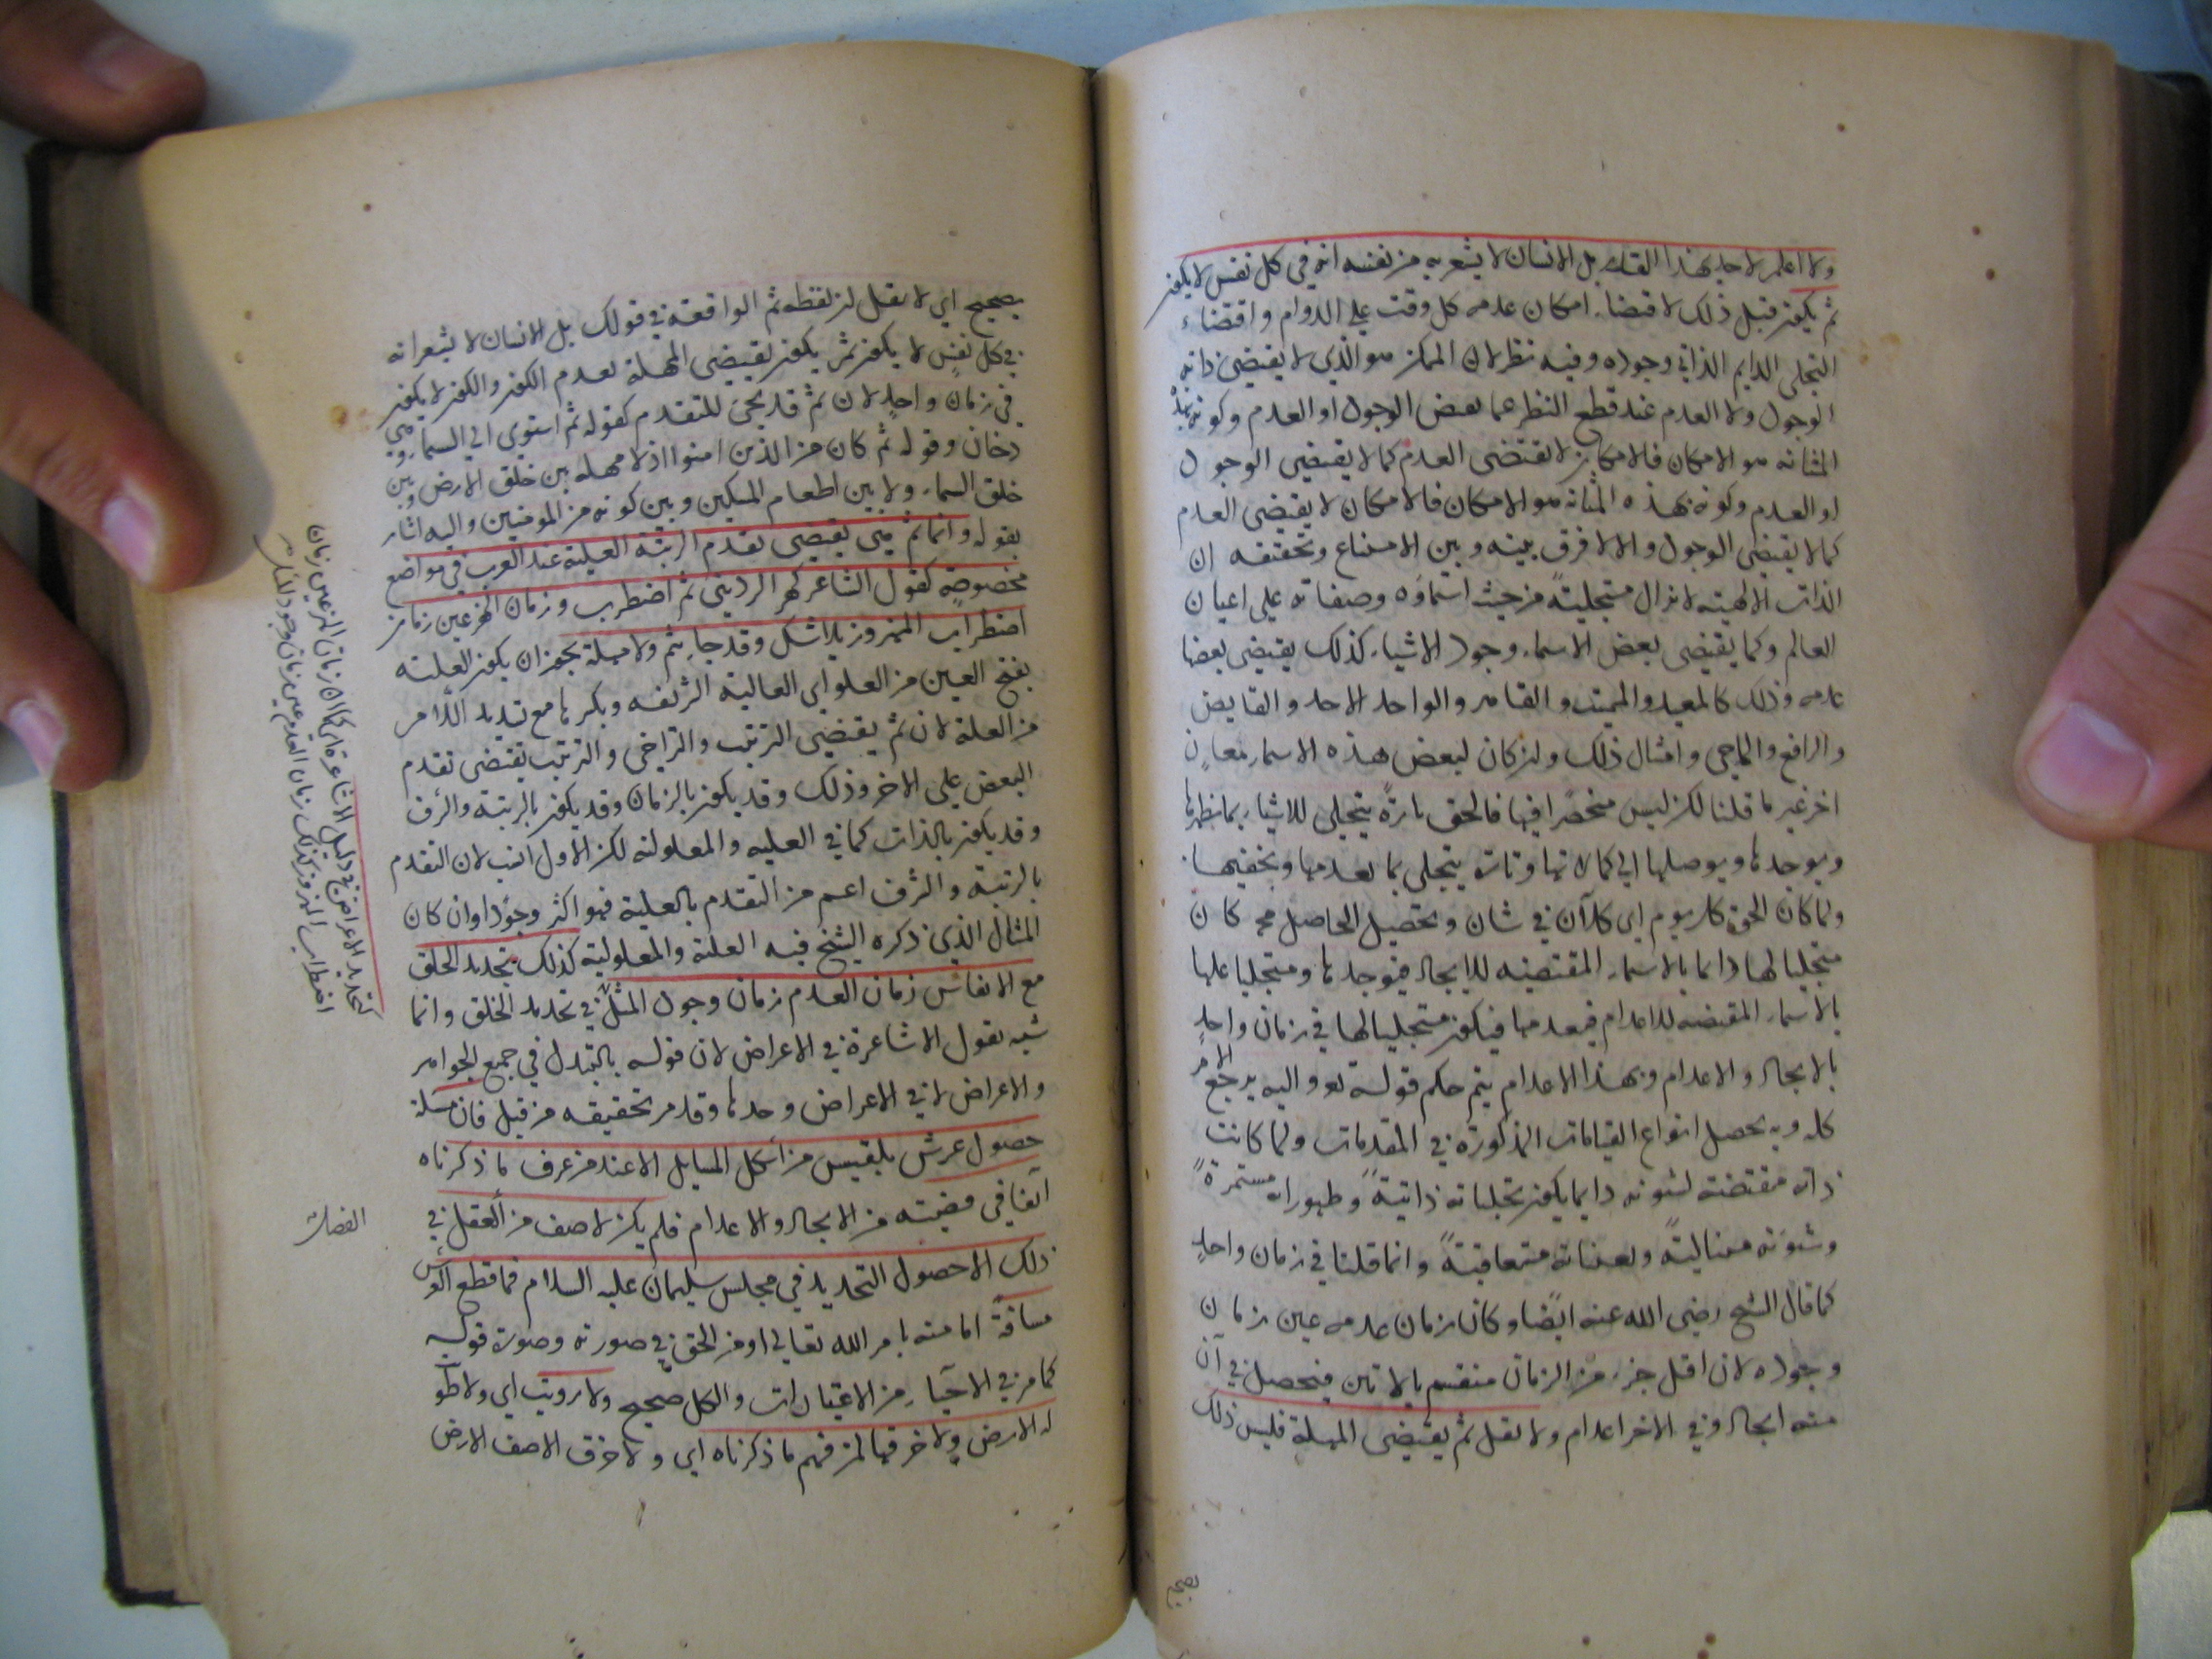 ولا اعلم لاحد بهذا القدر بل الانسان لا يشعر به من نفسه انه في كل نفس لا يكون
ثم يكون فقيل ذلك لاقتضاء امكان عدمه كل وقت على الدوام واقتضاء
التجلى الدايم الذاتي وجوده وفيه نظر لان الممكن هو الذي لا يقتضى ذاته
الوجود ولا العدم عند قطع النظر عما يعض الوجود او العدم وكونه بهذه
المثابة هو الامكان فالامكان لا يقتضى العدم كما لا يقتضى الوجود
او العدم وكونه بهذه المثابة هو الامكان فالامكان لا يقتضى العدم
كما لا يقتضى الوجود والا لا فرق بينه وبين الامتناع وتحقيقه ان
الذات الالهية لا تزال متجلية من حيث اسماؤه وصفاته على اعيان
العالم وكما يقتضى بعض الاسماء وجود الاشياء كذلك يقتضى بعضها
عدمه وذلك كالمعيد والمميت والقاهر والواحد الاحد والقابض
والرافع والماحى وامثال ذلك وان كان لبعض هذه الاسماء معان
اخر غير ما قلنا لكن ليس منحصرا فيها فالحق تارة يتجلى للاشياء بما يظهرها
ويوجدها ويوصلها الى كمالاتها وتارة يتجلى بما يعدمها ويخفيها
ولما كان الحق كل يوم اى كل آن في شان وتحصيل الحاصل مح كان
متجليا لها دائما بالاسماء المقتضية للايجاد فيوجدها ومتجليا عليها
بالاسماء المقتضية للاعدام فيعدمها فيكون متجليا لها في زمان واحد
بالايجاد والاعدام وبهذا الاعدام يتم حكم قوله تعو واليه يرجع الامر
كله وبه يحصل انواع القيامات المذكورة في المقدمات ولما كانت
ذاته مقتضية لشئونه دايما يكون تجلياته ذاتية وظهوراته مستمرة
وشئونه متتالية وتعيناته متعاقبة وانما قلنا في زمان واحد
كما قال الشيخ رضى الله عنه ايضا وكان زمان عدمه عين زمان
وجوده لان اقل جزء من الزمان منقسم بالآنين فيحصل في آن
منه ايجاد وفي الاخر اعدام ولا تقل ثم يقتضى المهلة فليس ذلك
بصحيح
بصحيح اى لا تقل ان لفظه ثم الواقعة في قولك بل الانسان لا يشعر انه
في كل نفس لا يكون ثم يكون يقتضى المهلة لعدم الكون والكون لا يكون
في زمان واحد لان ثم قد يجئ للتقدم كقوله ثم استوى الى السماء وهى
دخان وقوله ثم كان من الذين امنوا اذ لا مهله بين خلق الارض وبين
خلق السماء ولا بين اطعام المسكين وبين كونه من المومنين واليه اشار
بقوله وانما ثم هى يقتضى تقدم الرتبة العلية عند العرب في مواضع
مخصوصة كقول الشاعر كهز الردينى ثم اضطرب وزمان الهز عين زمان
اضطراب المهزوز بلا شك وقد جاء بثم ولا مهلة يجوز ان يكون العلية
بفتح العين من العلو اى العالية الشريفه وبكسرها مع تشديد اللام
من العلة لان ثم يقتضى الترتيب والتراخى والترتيب يقتضى تقدم
البعض على الاخر وذلك وقد يكون بالزمان وقد يكون بالرتبة والشرف
وقد يكون بالذات كما في العلية والمعلولية لكن الاول انسب لان التقدم
بالرتبة والشرف اعم من التقدم بالعلية فهو اكثر وجودا وان كان
المثال الذي ذكره الشيخ فيه العلية والمعلولية كذلك تجديد الخلق
مع الانفاس زمان العدم زمان وجود المثل في تجديد الخلق وانما
شبه بقول الاشاعرة في الاعراض لان قوله بالتبدل في جميع الجواهر
والاعراض لا في الاعراض وحدها وقد مر تحقيقه من قبل فان مسئلة
حصول عرش بلقيس من اشكل المسايل الا عند من عرف ما ذكرناه
آنفا في قضيته من الايجاد والاعدام فلم يكن لاصف من العقل في
ذلك الا حصول التجديد في مجلس سليمان عليه السلام فما قطع العرش
مسافة اما منه بامر الله تعالى او من الحق في صورته وصورة قوله
كما مر في الاحياء من الاعتبارات والكل صحيح ولا رويت اى ولا طو
له الارض ولا خرقها لمن فهم ما ذكرناه اى ولا خرق الاصف الارض
كتجديد الاعراض في دليل الاشاعرة اى كما ان زمان الهز عين زمان
اضطراب المهزوز كذلك زمان العدم عين زمان وجود المثل
الفضل